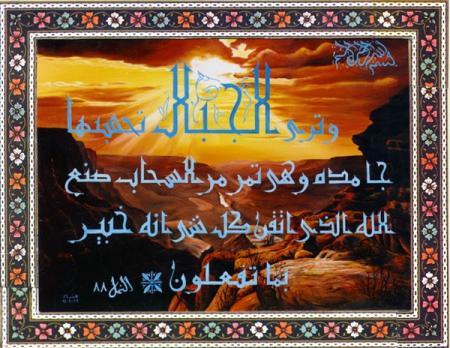 بسم الله الرحمن الرحيم
وترى الجبال تحسبها
جامده وهى تمر مر السحاب صنع
الله الذى اتقن كل شى انه خبير
بما تفعلون النمل ٨٨